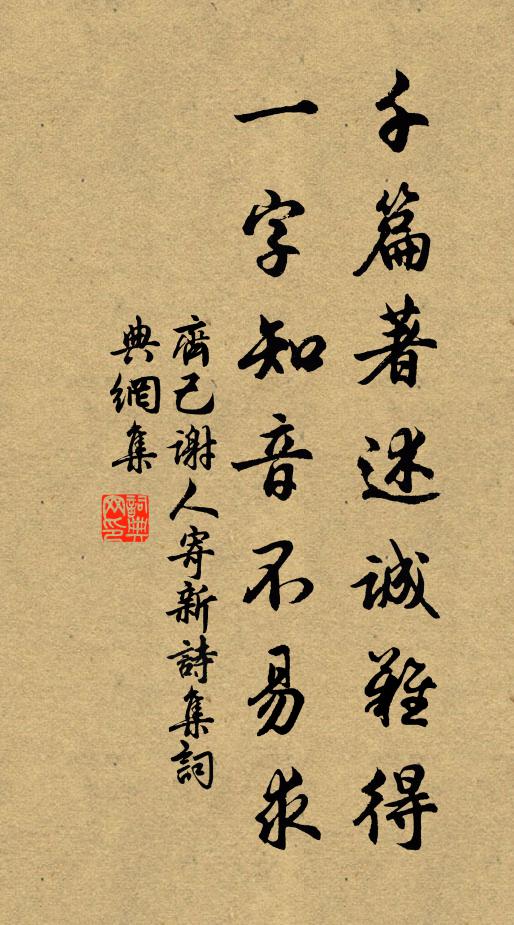 千篇著述誠難得
一字知音不易求
齊己謝人寄新詩集詞
典網集
詞典網印